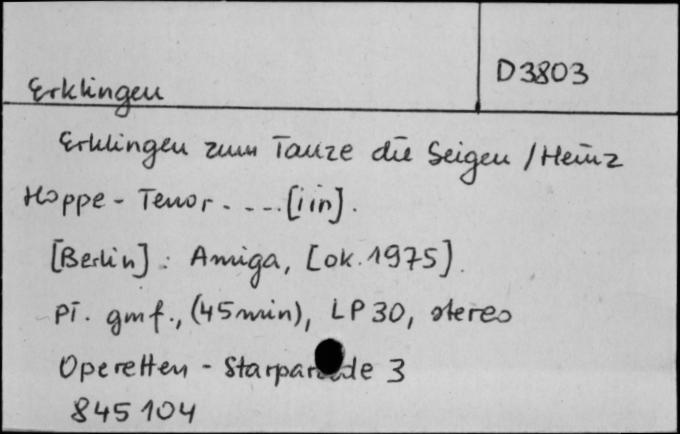 D3803
Erklingen
Erklingen zum Tanze die Geigen / Heinz
Hoppe - Tenor . . . . [i in].
[Berlin] : Amiga, [ok. 1975].
Pł. gmf., (45 min), LP 30, stereo
Operetten - Starparade 3
845 104